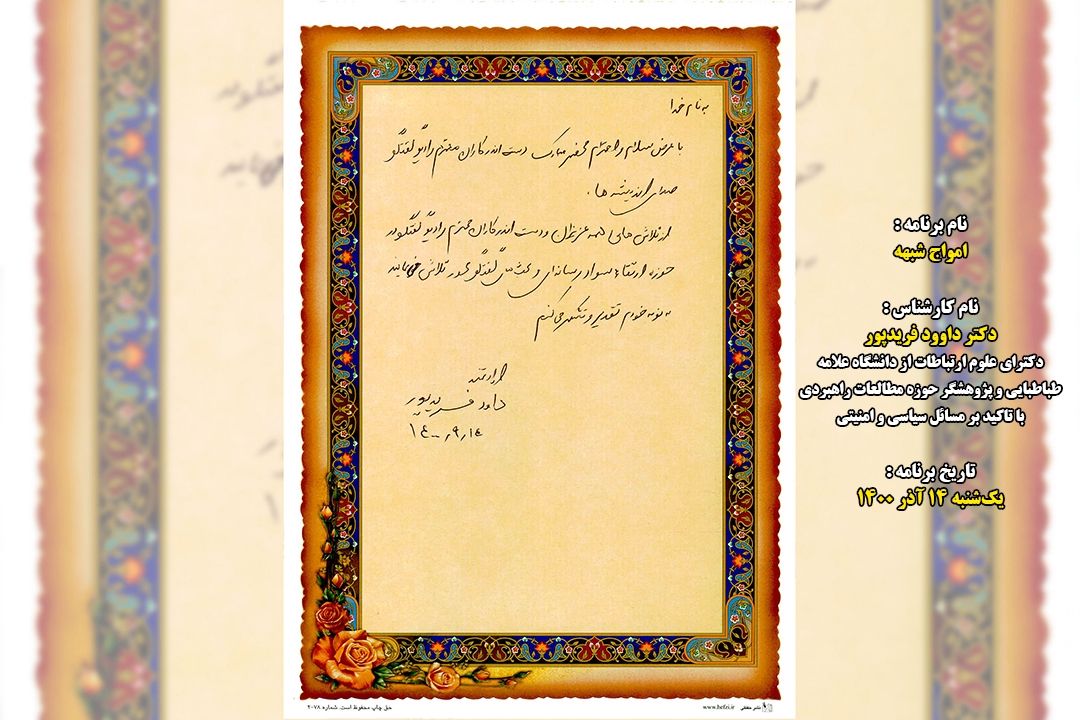 به نام خدا
با عرض سلام و احترام محضر مبارک دست اندرکاران محترم رادیو گفتگو
صدای اندیشه ها.
از تلاش های همه عزیزان و دست اندرکاران محترم رادیو گفتگو در
حوزه ارتقاء سواد رسانه ای و بحث های گفتگو محور تلاش می نمایند
به نوبه خودم تقدیر و تشکر می کنم
ارادتمند
داود فریدپور
۱۴۰۰٫۹٫۱۴
نام برنامه :
امواج شبهه
نام کارشناس :
دکتر داوود فریدپور
دکترای علوم ارتباطات از دانشگاه علامه
طباطبایی و پژوهشگر حوزه مطالعات راهبردی
با تاکید بر مسائل سیاسی و امنیتی
تاریخ برنامه :
یک‌شنبه ۱۴ آذر ۱۴۰۰
نشر حفظی www.hefzi.ir
حق چاپ محفوظ است. شماره ۲۰۷۸